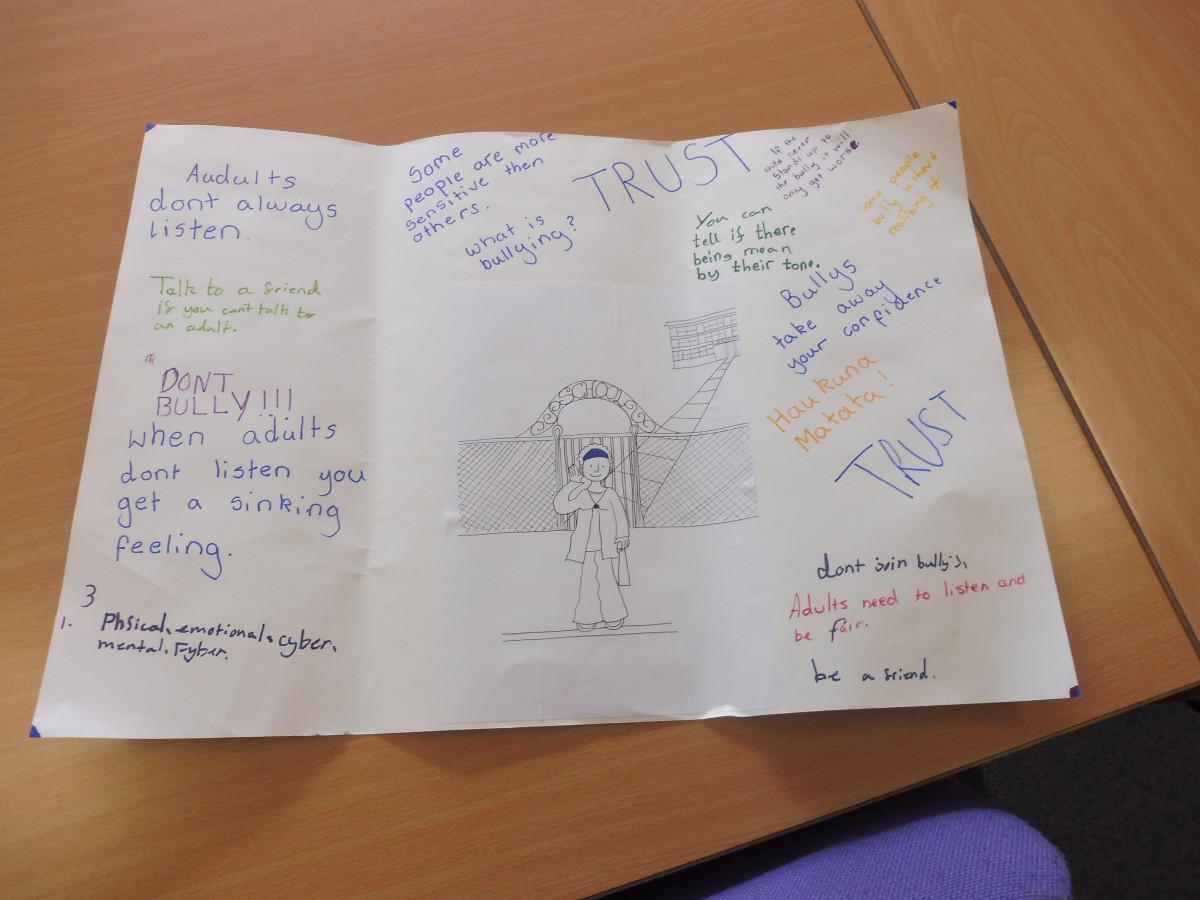 Audults
dont always
listen.
Talk to a friend
if you can't talk to
an adult.
DONT
BULLY!!!
when adults
dont listen you
get a sinking
feeling.
3
1. Phsical, emotional, cyber,
mental, Fyber.
Some
people are more
sensitive then
others.
what is
bullying?
TRUST
If the
child never
stands up to
the bully it will
only get worse.
Some people
bully without
realising it
You can
tell if there
being mean
by their tone.
Bullys
take away
your confidence
Haukuna
Matata!
TRUST
SCHOOL
dont join bullys,
Adults need to listen and
be fair.
be a friend.